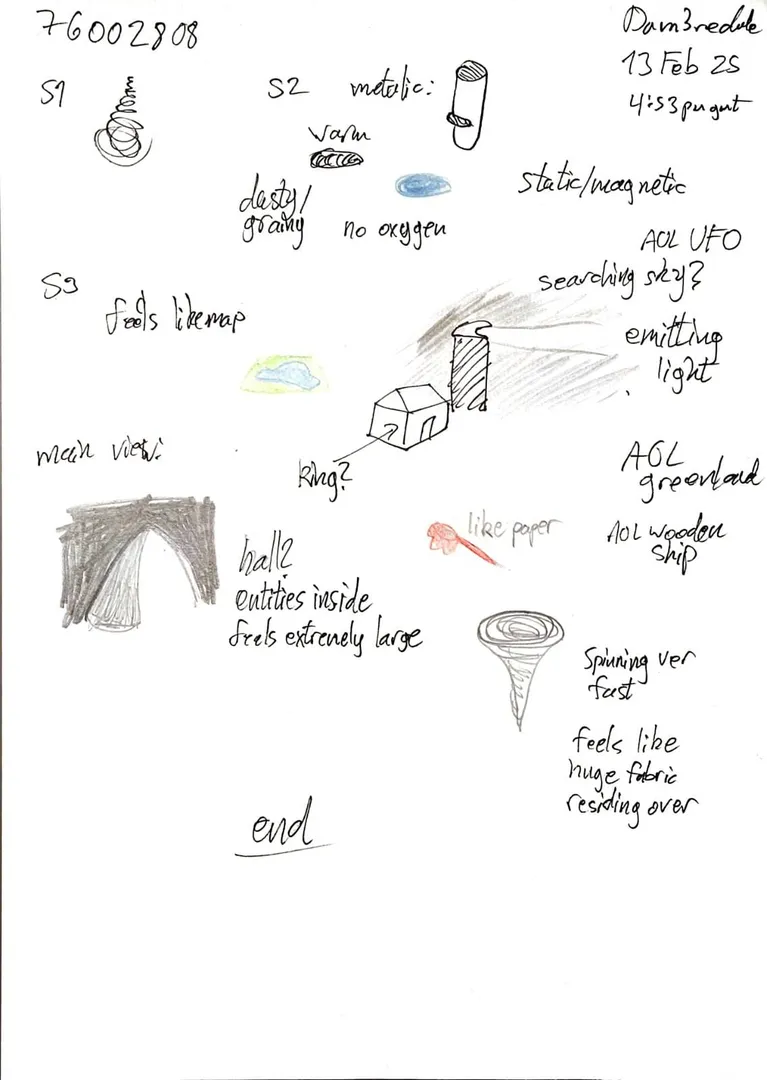 76002808
13 Feb 25
S1
S2
metalic:
warm
dusty/
grainy
no oxygen
static/magnetic
AOL UFO
searching sky?
emitting
light
S3
feels like map
main view:
king?
AOL
AOL wooden
ship
like paper
hall?
entities inside
feels extremely large
spinning ver
fast
feels like
huge fabric
residing over
end